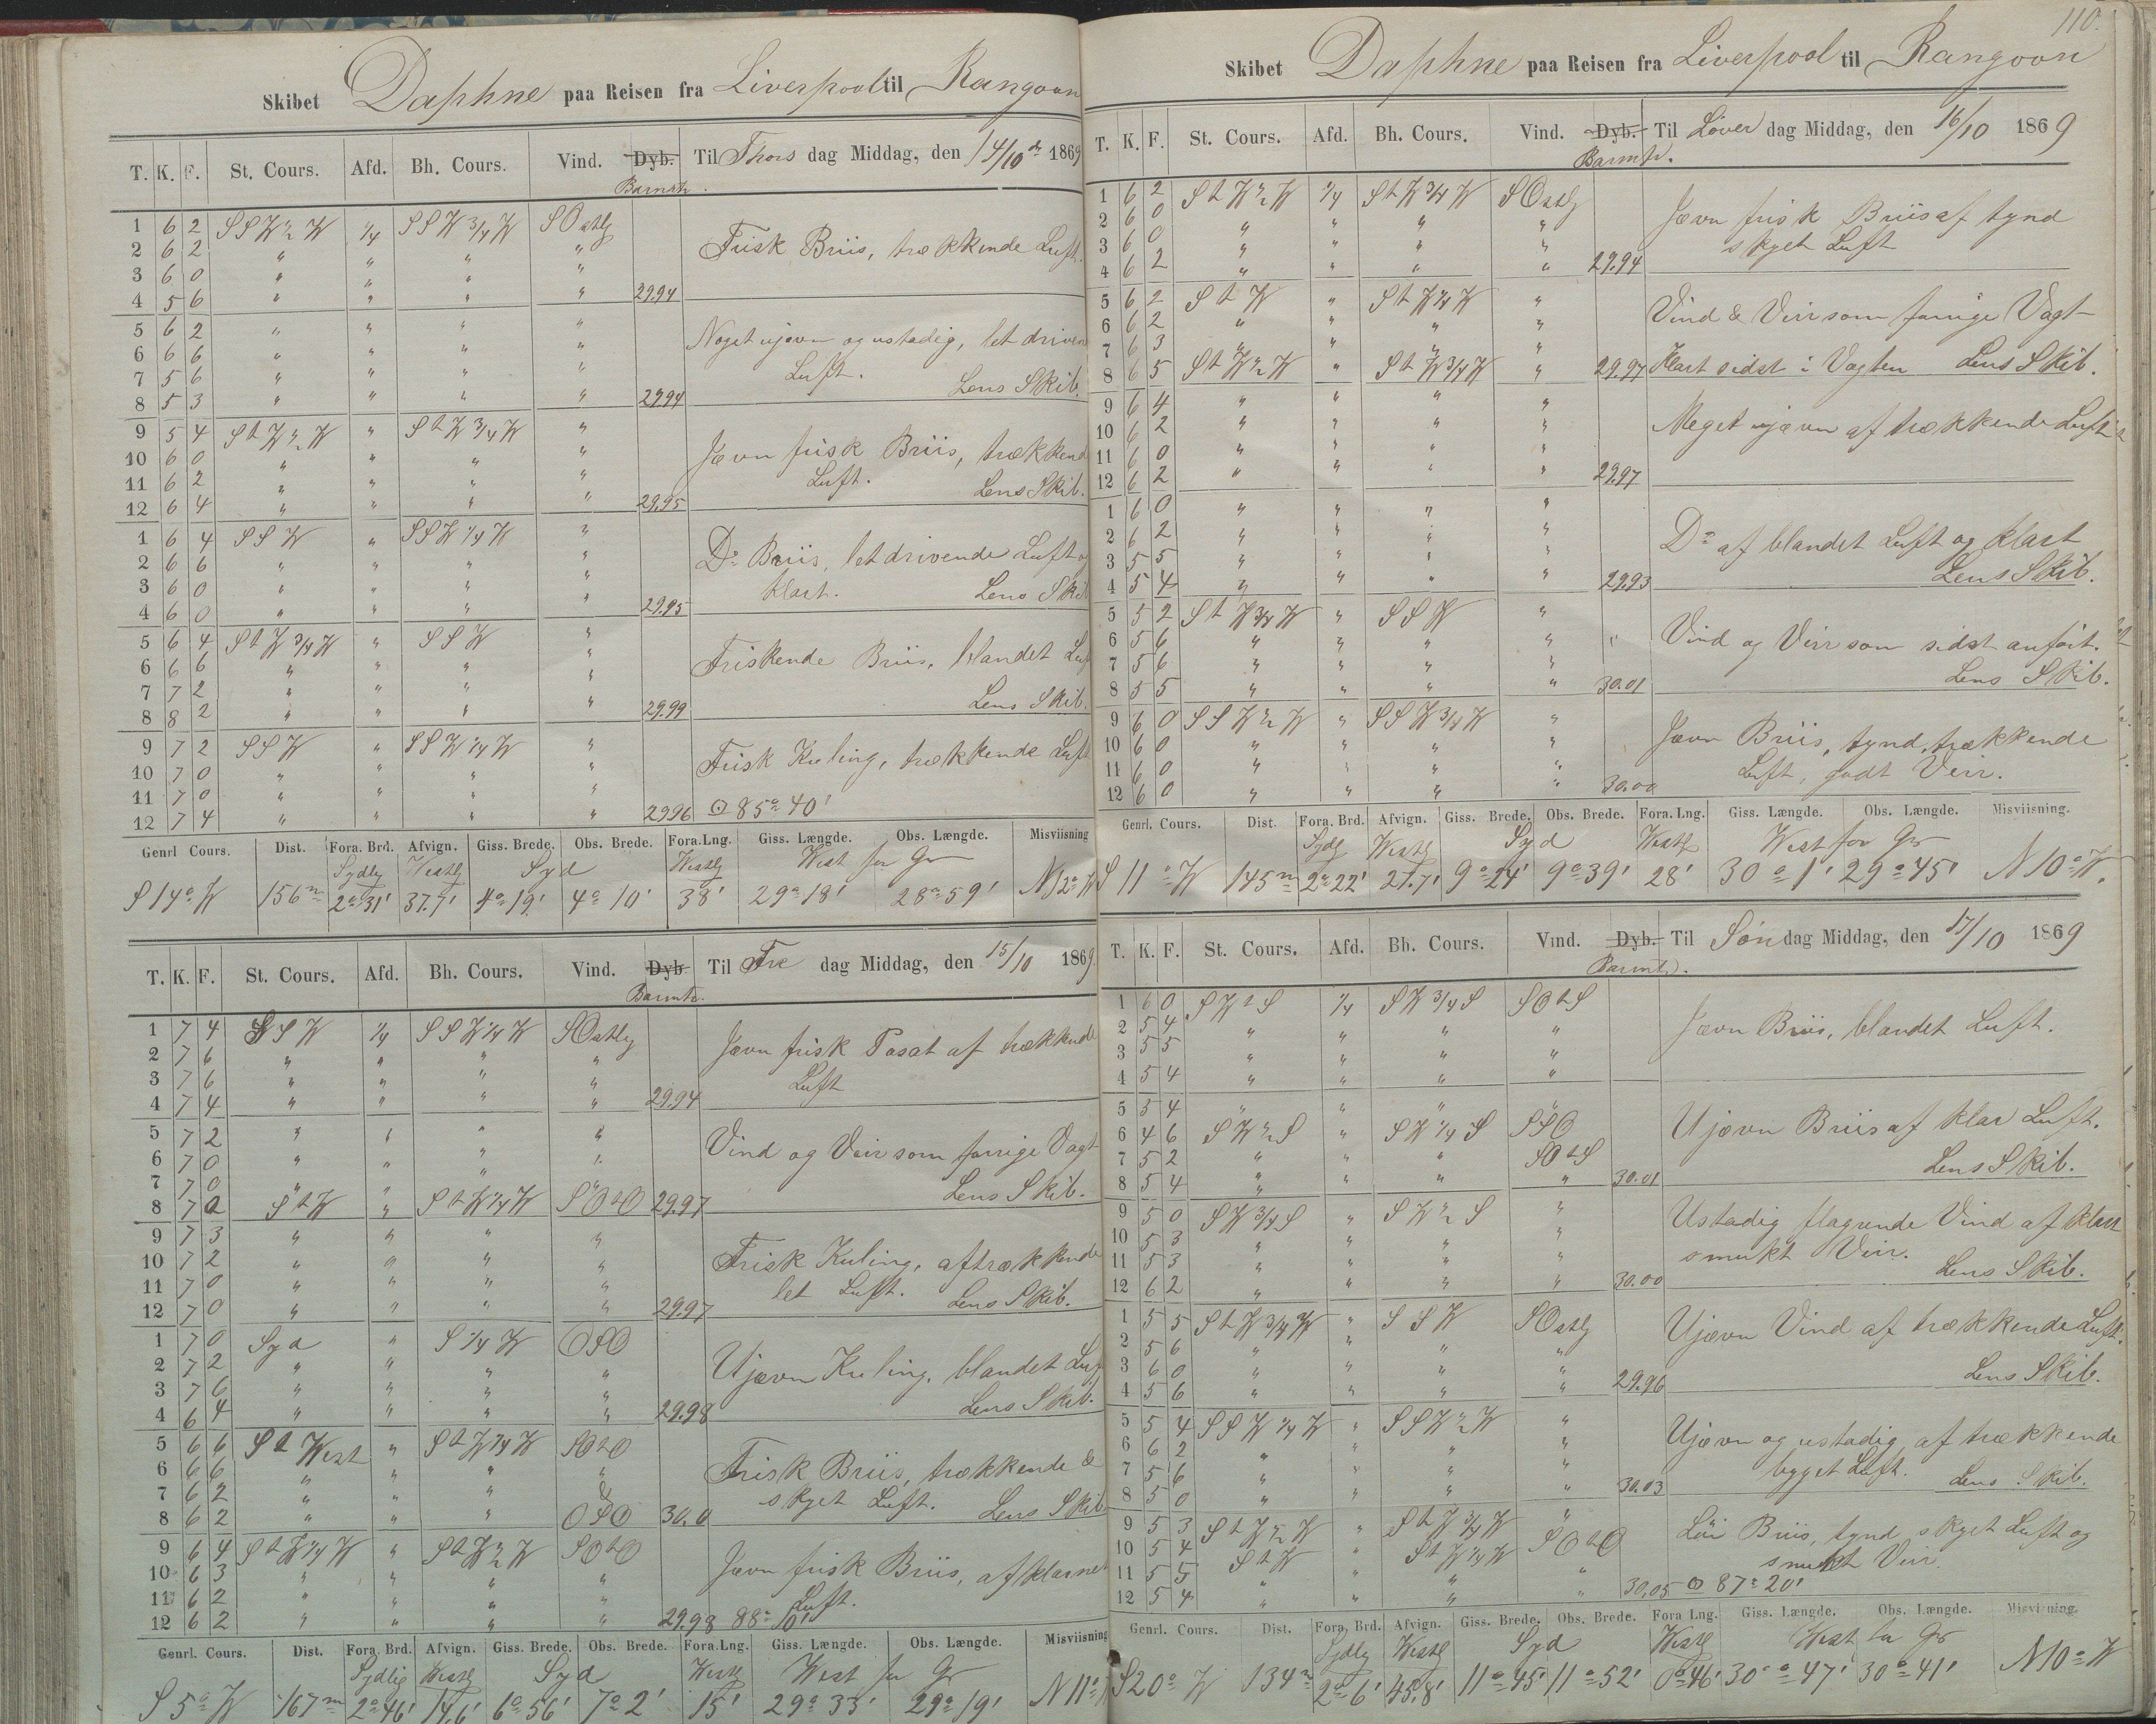 Skibet Daphne paa Reisen fra Liverpool til Rangoon
T. K. F. St. Cours. Afd. Bh. Cours. Vind. Dyb. Til Thors dag Middag, den 14/10 de 1869
Barmtr.
1 6 2 SSW ½ W ¼ SSW ¾ W SOstlg
2 6 2 " " " "
Frisk Briis, trækkende Luft.
3 6 0 " " " "
4 5 6 " " " " 29.94
5 6 2 " " " "
6 6 6 " " " "
Noget ujævn og ustadig, let driven
7 5 6 " " " "
Luft. Lens Skib.
8 5 3 " " " " 29.94
9 5 4 S t W ½ W " S t W ¾ W "
10 6 0 " " " "
Jævn frisk Briis, trækkend
11 6 2 " " " "
Luft. Lens Skib.
12 6 4 " " " " 29.95
1 6 4 SSW " SSW ¼ W "
2 6 6 " " " "
Do Briis, let drivende Luft og
3 6 0 " " " "
klart. Lens Skib
4 6 0 " " " " 29.95
5 6 4 S t W ¾ W " SSW "
6 6 6 " " " "
Friskende Briis, blandet Luf
7 7 2 " " " "
8 8 2 " " " " 29.99 Lens Skib.
9 7 2 SSW " SSW ¼ W "
10 7 0 " " " "
Frisk Kuling, trækkende Luft
11 7 0 " " " "
12 7 4 " " " " 29.96 ⊙ 85° 40'
Genrl Cours. Dist. Fora. Brd. Afvign. Giss. Brede. Obs. Brede. Fora. Lng. Giss. Længde. Obs. Længde. Misviisning
Sydlg Westlg Syd Westlg West for Gr
S 14° W 156 m 2° 31' 37.7' 4° 19' 4° 10' 38' 29° 18' 28° 59' N 12° W
T. K. F. St. Cours. Afd. Bh. Cours. Vind. Dyb Til Fre dag Middag, den 15/10 1869.
Barmtr.
1 7 4 SSW ¼ SSW ¼ W SOstlg
2 7 6 " " " "
Jævn frisk Pasat af trækkende
3 7 6 " " " "
Luft
4 7 4 " " " " 29.94
5 7 2 " " " "
6 7 0 " " " "
Vind og Veir som forrige Vagt
7 7 0 " " " "
Lens Skib.
8 7 0 S t W " S t W ¼ W SO t O 29.97
9 7 3 " " " "
10 7 2 " " " "
Frisk Kuling, af trækkende
11 7 0 " " " "
let Luft. Lens Skib.
12 7 0 " " " " 29.97
1 7 0 Syd " S ¼ W OSO
2 7 2 " " " "
Ujævn Kuling, blandet Luf
3 7 6 " " " "
4 6 4 " " " " 29.98 Lens Skib.
5 6 6 S t West " S t W ¼ W SO t O
6 6 6 " " " "
Frisk Briis, trækkende &
7 6 2 " " " &
skyet Luft. Lens Skib
8 6 2 " " " OSO 30.0
9 6 4 S t W ¼ W " S t W ½ W SO t O
10 6 3 " " " "
Jævn frisk Briis, af klarnet
11 6 2 " " " "
Luft.
12 6 2 " " " " 29.98 88° 10'
Genrl. Cours. Dist. Fora. Brd. Afvign. Giss. Brede. Obs. Brede. Fora. Lng. Giss. Længde. Obs. Længde. Misviisning
Sydlig Westlg Syd Westlg West for Gr
S 5° W 167 m 2° 46' 14.6' 6° 56' 7° 2' 15' 29° 33' 29° 19' N 11°
110.
Skibet Daphne paa Reisen fra Liverpool til Rangoon
T. K. F. St. Cours. Afd. Bh. Cours. Vind. Dyb. Til Løver dag Middag, den 16/10 1869
Barmtr.
1 6 2 S t W ½ W ¼ S t W ¾ W SOstlg
2 6 0 " " " "
Jævn frisk Briis af tynd
3 6 0 " " " "
skyet Luft
4 6 2 " " " " 29.94
5 6 2 S t W " S t W ¼ W "
6 6 2 " " " "
Vind & Veir som forrige Vagt
7 6 3 " " " "
8 6 5 S t W ½ W " S t W ¾ W " 29.97 Klart sidst i Vagten Lens Skib.
9 6 4 " " " "
10 6 2 " " " "
Meget ujævn af trækkende Luft
11 6 0 " " " "
12 6 2 " " " " 29.97
1 6 0 " " " "
2 6 2 " " " "
Do af blandet Luft og klart
3 5 5 " " " "
Lens Skib.
4 5 4 " " " " 29.93
5 5 2 S t W ¾ W " SSW "
6 5 6 " " " " "
Vind og Veir som sidst anført.
7 5 6 " " " "
Lens Skib.
8 5 5 " " " " 30.01
9 6 0 SSW ½ W " SSW ¾ W "
10 6 0 " " " "
Jævn Briis, tynd, trækkende
11 6 0 " " " "
Luft, godt Veir.
12 6 0 " " " " 30.00
Genrl. Cours. Dist. Fora. Brd. Afvign. Giss. Brede. Obs. Brede. Fora. Lng. Giss. Længde. Obs. Længde. Misviisning.
Sydlg Westlg Syd Westlg West for Gr
S 11° W 145 m 2° 22' 27.7' 9° 24' 9° 39' 28' 30° 1' 29° 45' N 10° W.
T. K. F. St. Cours. Afd. Bh. Cours. Vind. Dyb. Til Søn dag Middag, den 17/10 1869
Barmtr.
1 6 0 SW t S ¼ SW ¾ S SO t S
2 5 4 " " " "
Jævn Briis, blandet Luft.
3 5 5 " " " "
4 5 4 " " " "
5 5 4 " " " "
6 4 6 SW ½ S " SW ¼ S SSO
Ujævn Briis af klar Luft.
7 5 2 " " " SO t S
Lens Skib.
8 5 4 " " " " 30.01
9 5 0 SW ¾ S " SW ½ S "
Ustadig flagrende Vind af klart
10 5 3 " " " "
smukt Veir.
11 5 3 " " " "
Lens Skib.
12 6 2 " " " " 30.00
1 5 5 S t W ¾ W " SSW SOstlg
2 5 6 " " " "
Ujævn Vind af trækkende Luft.
3 6 0 " " " "
Lens Skib.
4 5 6 " " " " 29.96
5 5 4 SSW ¼ W " SSW ½ W "
6 6 2 " " " "
Ujævn og ustadig af trækkende
7 5 6 " " " "
byget Luft. Lens Skib.
8 5 0 " " " " 30.03
9 5 3 S t W ½ W " S t W ¾ W "
Løi Briis, tynd skyet Luft og
10 5 4 S t W " S t W ¼ W SO t O
smukt Veir.
11 5 5 " " " "
12 5 4 " " " " 30.05 ⊙ 87° 20'
Genrl. Cours. Dist. Fora. Brd. Afvign. Giss. Brede. Obs. Brede. Fora Lng. Giss. Længde. Obs. Længde. Misviisning.
Sydlg Westlg Syd Westlg West fra Gr
S 20° W 134 m 2° 6' 45.8' 11° 45' 11° 52' 0° 46' 30° 47' 30° 41' N 10° W